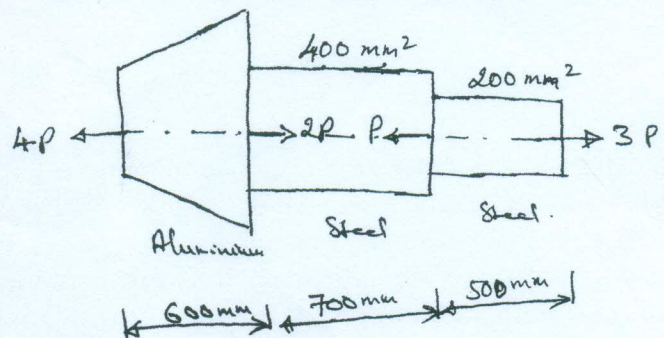 400 mm²
200 mm²
4P 2P P 3P
Aluminium Steel Steel.
600mm 700mm 500mm